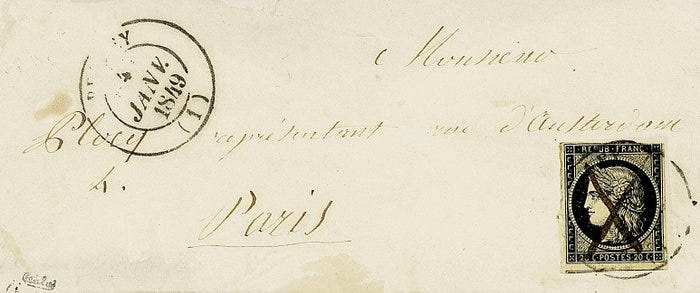 4
JANV.
1849
(1)
Monsieur
représentant rue d'Amsterdam
4.
Paris
REPUB. FRANC.
20 C POSTES 20 C